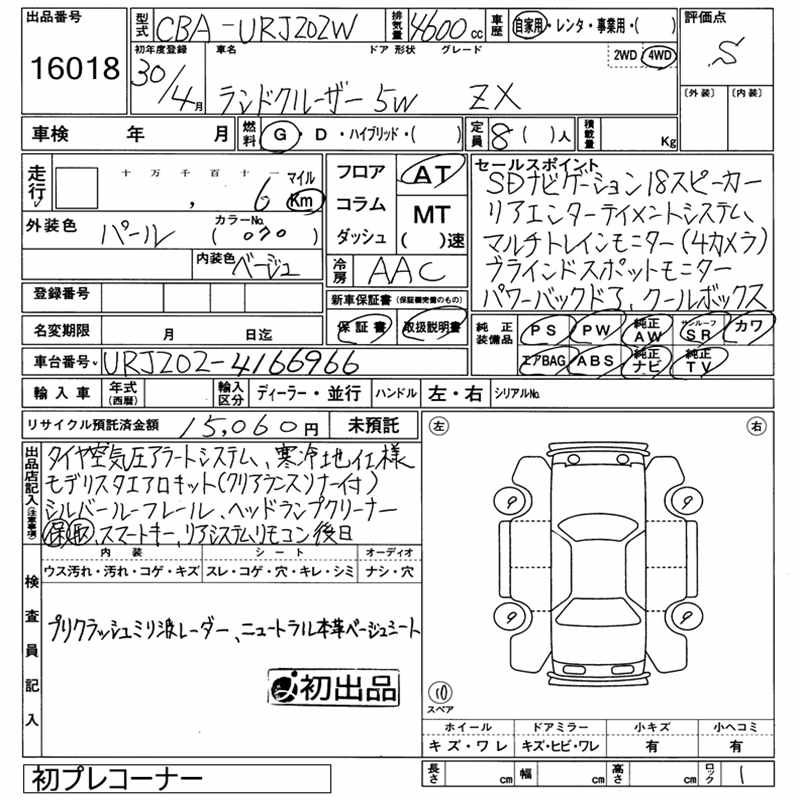 出品番号 型式 CBA-URJ202W 排気量 4600 cc 車歴 自家用・レンタ・事業用・( ) 評価点
16018 初年度登録 車名 ドア 形状 グレード 2WD 4WD S
30/4月 ランドクルーザー 5W ZX 〔外装〕 〔内装〕
車検 年 月 燃料 G・D・ハイブリッド・( ) 定員 8( )人 積載量 Kg
走行 十 万 千 百 十 一 マイル フロア AT セールスポイント
, 6 Km コラム MT SDナビゲーション18スピーカー
外装色 パール カラーNo. ( 070 ) ダッシュ ( )速 リアエンターテイメントシステム、
内装色 ベージュ 冷房 AAC マルチトレインモニター(4カメラ)
登録番号 新車保証書 (保証欄完備のもの) ブラインドスポットモニター
保証書 取扱説明書 パワーバックドア、クールボックス
名変期限 月 日迄 純正装備品 PS PW 純正AW サンルーフSR カワ
車台番号 URJ202-4166966 エアBAG ABS 純正ナビ 純正TV
輸入車 年式(西暦) 輸入区分 ディーラー・並行 ハンドル 左・右 シリアルNo.
リサイクル預託済金額 15,060円 未預託 左 右
出品店記入(注意事項) タイヤ空気圧アラートシステム、寒冷地仕様
モデリスタエアロキット(クリアランスソナー付)
シルバールーフレール、ヘッドランプクリーナー
保 取、スマートキー、リアシステムリモコン後日
内装 シート オーディオ
ウス汚れ・汚れ・コゲ・キズ スレ・コゲ・穴・キレ・シミ ナシ・穴
検査員記入
プリクラッシュミリ波レーダー、ニュートラル本革ベージュシート
初出品
9 9
9 9
10
スペア
ホイール ドアミラー 小キズ 小ヘコミ
キズ・ワレ キズ・ヒビ・ワレ 有 有
初プレコーナー 長さ cm 幅 cm 高さ cm ロック 1